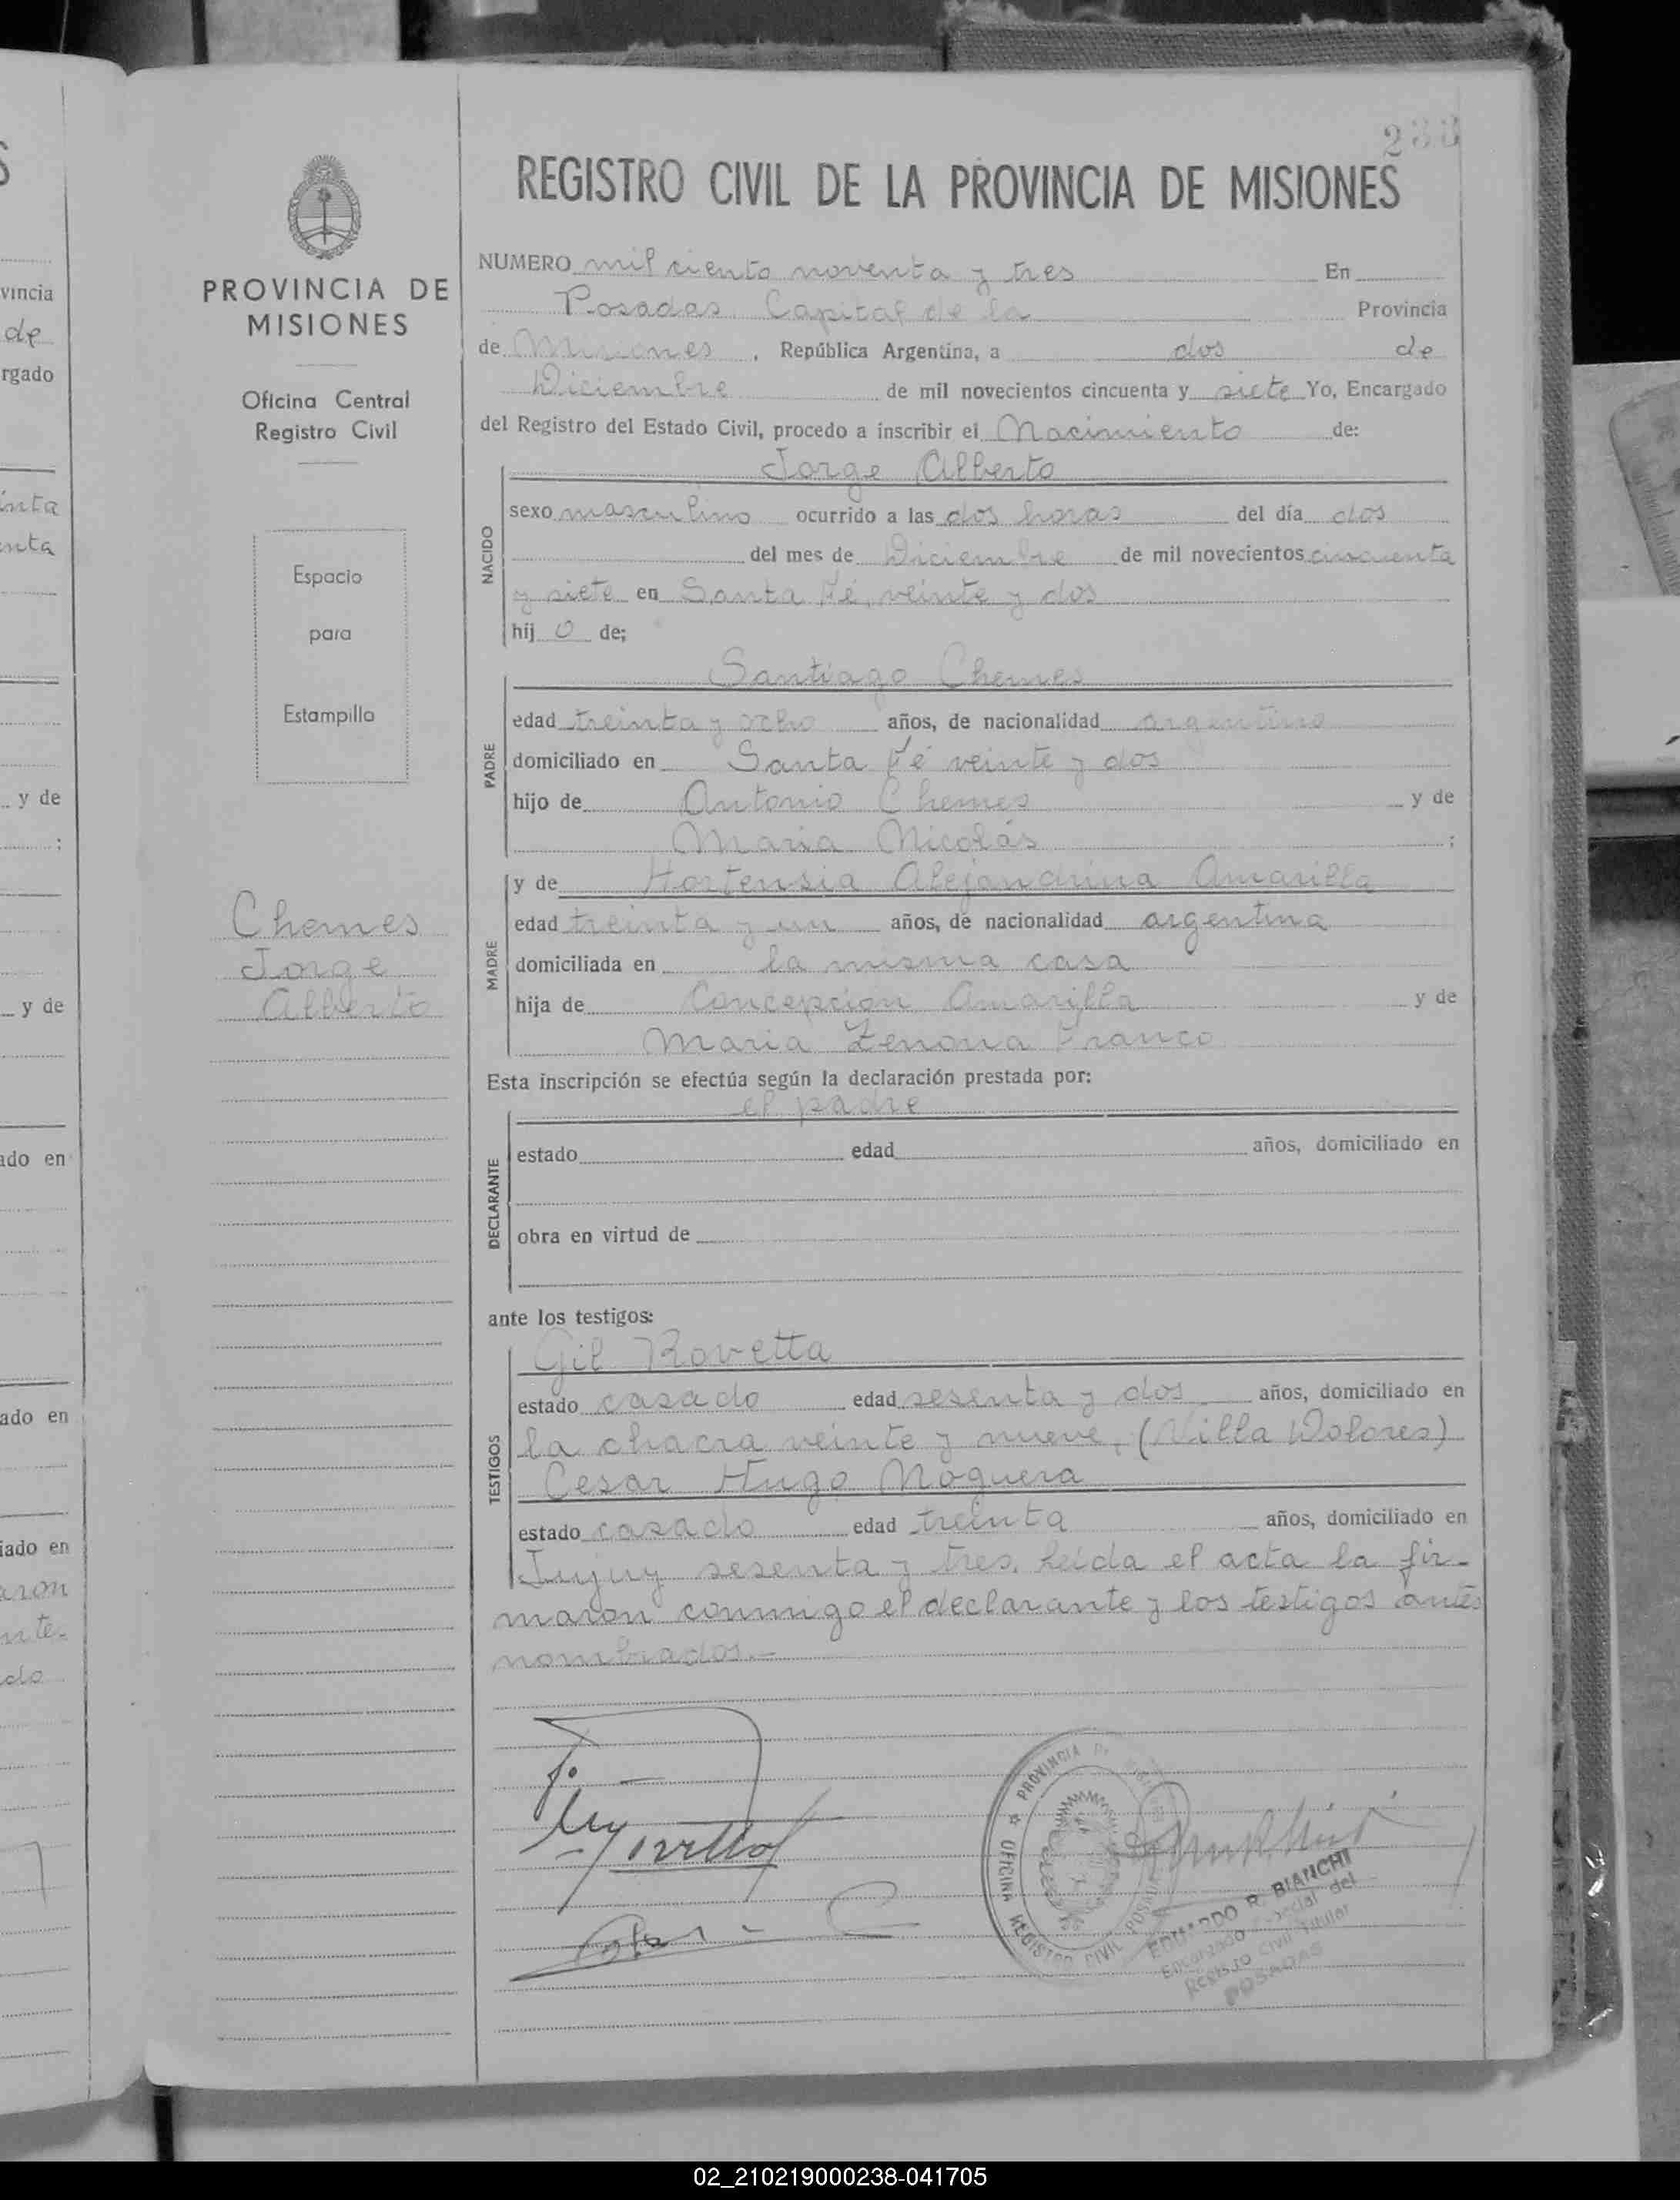 REGISTRO CIVIL DE LA PROVINCIA DE MISIONES
PROVINCIA DE
MISIONES
Oficina Central
Registro Civil
Espacio
para
Estampilla
Chemes
Jorge
Alberto
NUMERO mil ciento noventa y tres En
Posadas Capital de la Provincia
de Misiones, República Argentina, a dos de
Diciembre de mil novecientos cincuenta y siete Yo, Encargado
del Registro del Estado Civil, procedo a inscribir el Nacimiento de:
NACIDO
Jorge Alberto
sexo masculino ocurrido a las dos horas del día dos
del mes de Diciembre de mil novecientos cincuenta
y siete en Santa Fé, veinte y dos
hij o de;
PADRE
Santiago Chemes
edad treinta y ocho años, de nacionalidad argentino
domiciliado en Santa Fé veinte y dos
hijo de Antonio Chemes y de
Maria Nicolás ;
MADRE
y de Hortensia Alejandrina Amarilla
edad treinta y un años, de nacionalidad argentina
domiciliada en la misma casa
hija de Concepcion Amarilla y de
Maria Zenona Franco
Esta inscripción se efectúa según la declaración prestada por:
DECLARANTE
el padre
estado edad años, domiciliado en
obra en virtud de
ante los testigos:
TESTIGOS
Gil Rovetta
estado casado edad sesenta y dos años, domiciliado en
la chacra veinte y nueve, (Villa Dolores)
Cesar Hugo Noguera
estado casado edad treinta años, domiciliado en
Jujuy sesenta y tres. Leída el acta la fir-
maron conmigo el declarante y los testigos antes
nombrados.-
PROVINCIA
OFICINA REGISTRO CIVIL POSADAS
EDUARDO R. BIANCHI
Encargado del
Registro Civil Titular
POSADAS
vincia
de
rgado
inta
enta
y de
;
y de
ado en
ado en
iado en
aron
nte-
do
02_210219000238-041705